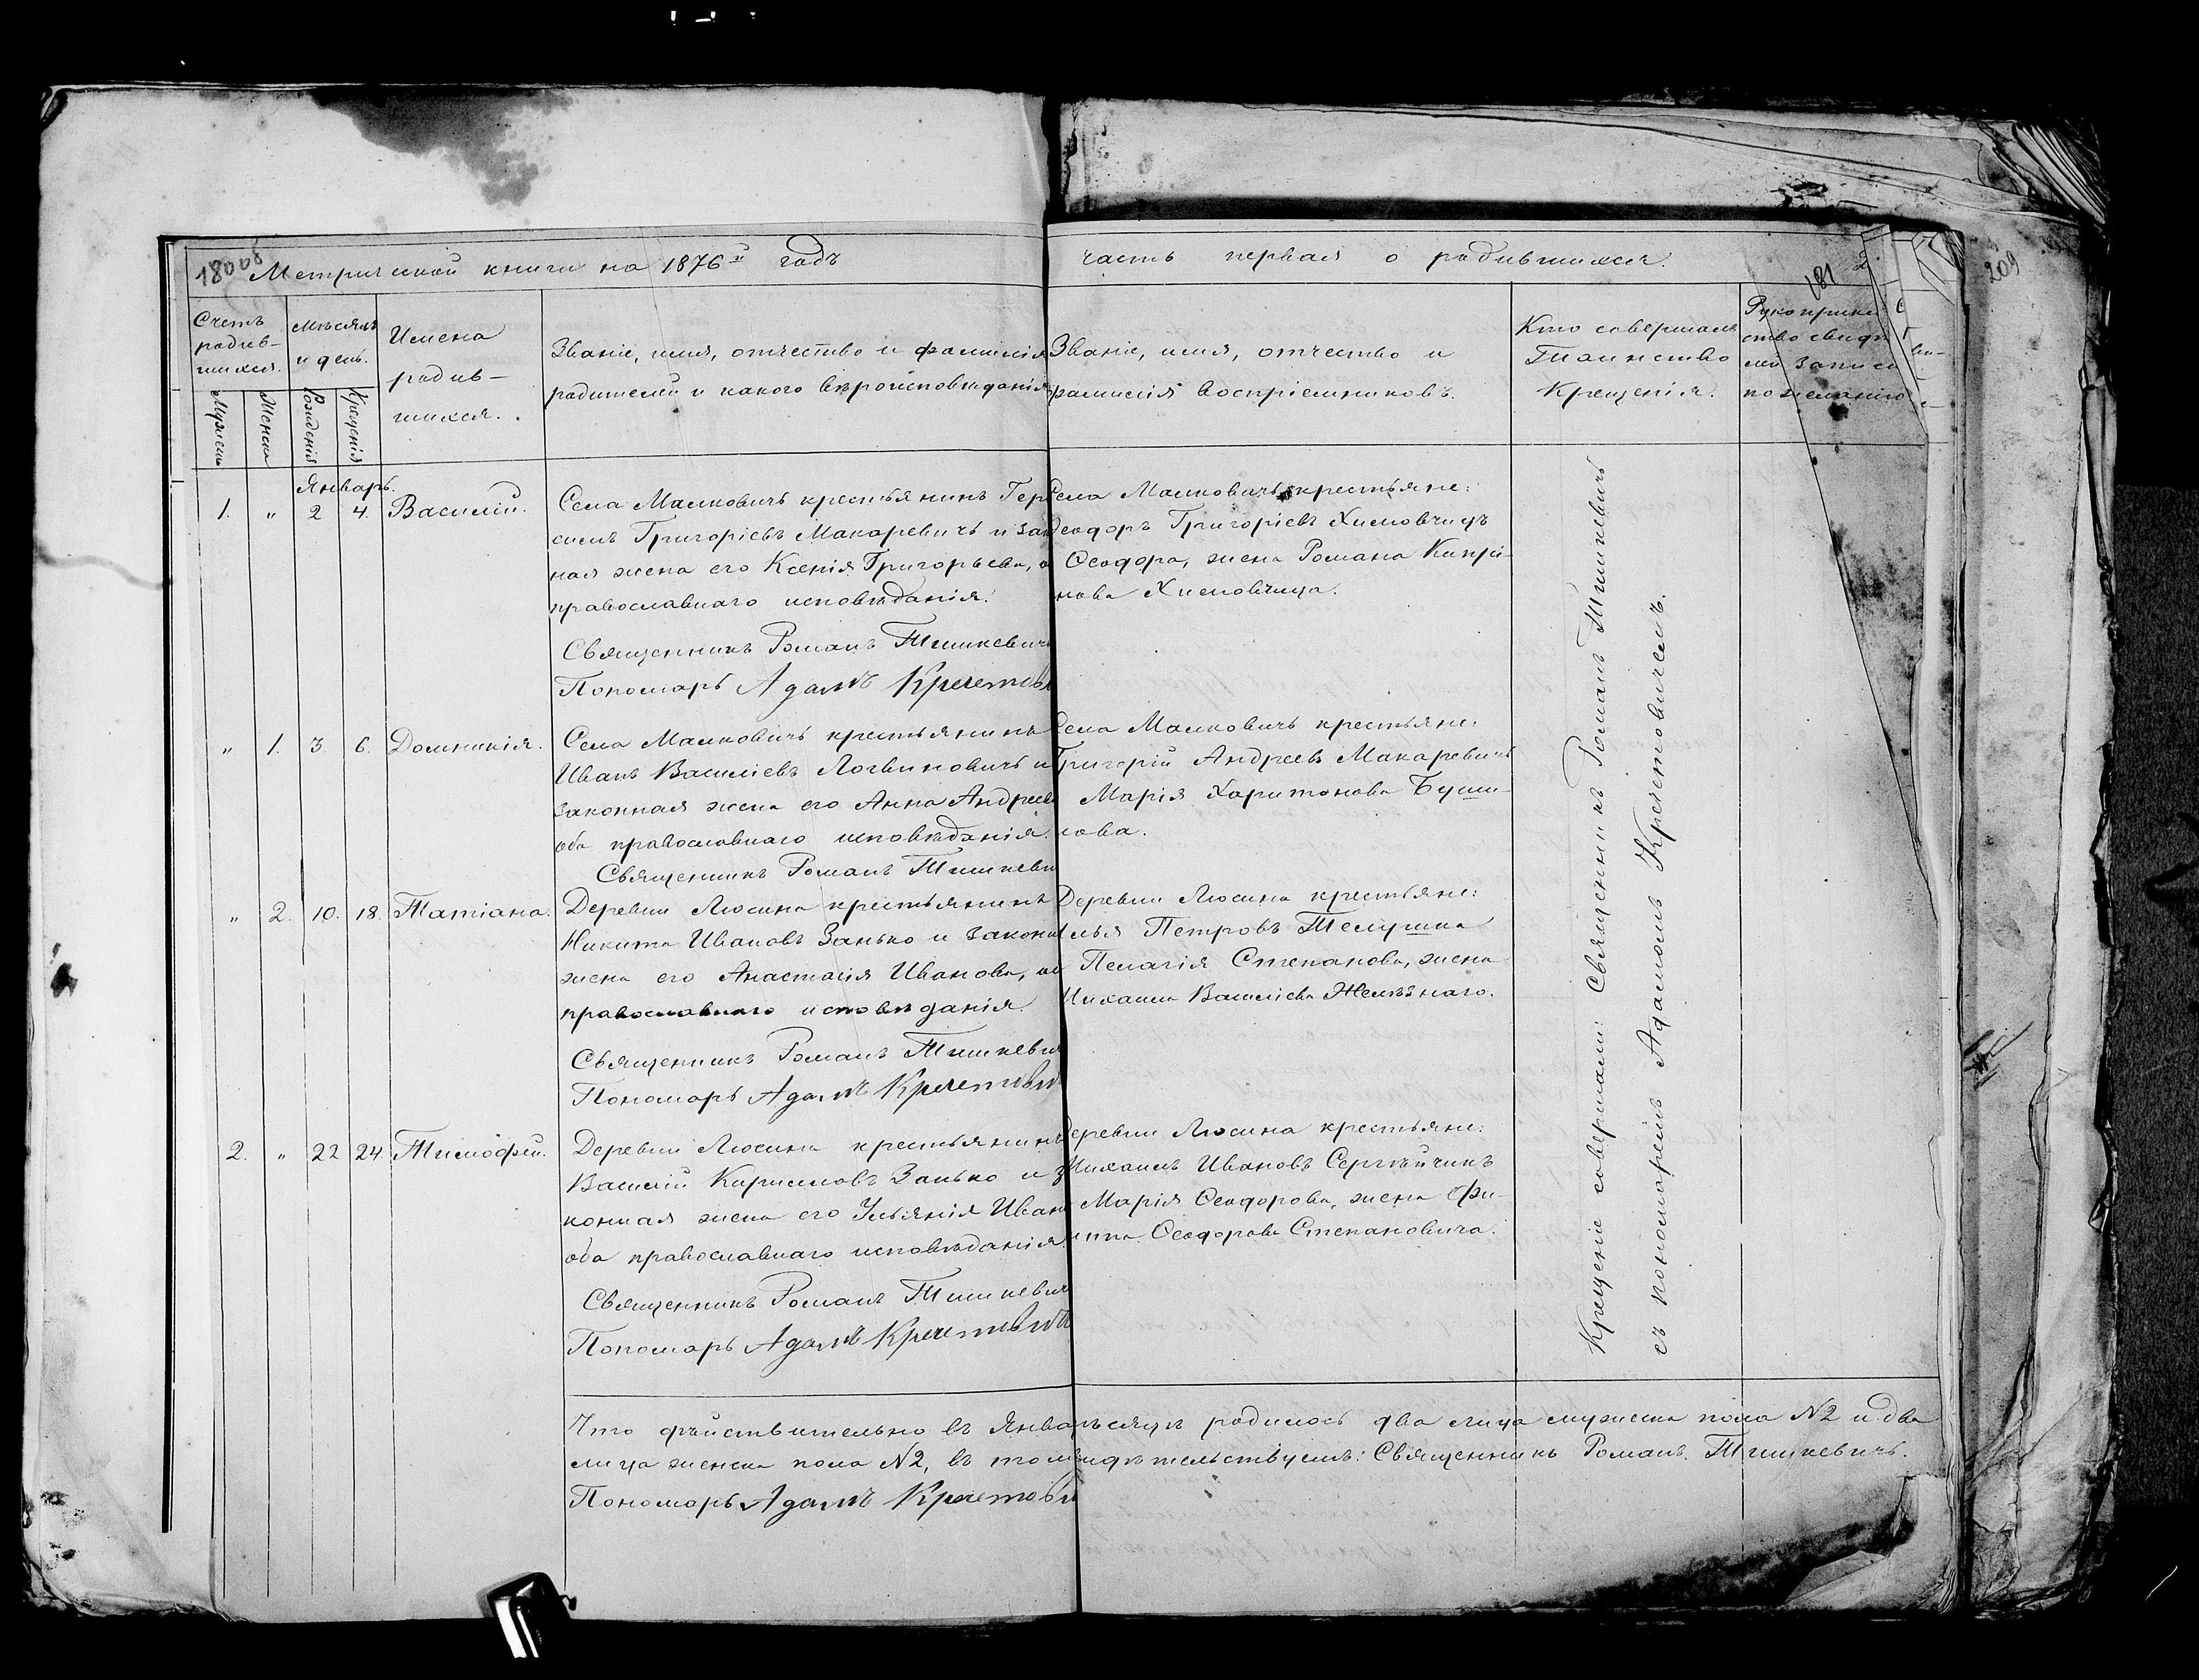 18008
Метрической книги на 1876й годъ
часть первая о родившихся.
181
209
Счетъ
родив-
шихся.
Мѣсяцъ
и день.
Имена
родив-
шихся.
Звание, имя, отчество и фамилія
родителей и какого вѣроисповѣданія
Званіе, имя, отчество и
фамилія воспріемниковъ.
Кто совершалъ
Таинство
Крещенія.
Рукоприкл
ство свидѣ
лей записи
по желанію
Мужеск
Женска
Рожденія
Крещенія
Январь.
1. " 2 4. Василій.
Села Малковичъ крестьянинъ Гер
симъ Григоріевъ Макаревичъ и зак
ная жена его Ксенія Григорьева, о
православнаго исповѣданія.
Священникъ Романъ Тишкевичъ
Пономарь Адамъ Кречетов
Села Малковичъ крестьяне:
Ѳеодоръ Григоріевъ Химовчицъ
Ѳеодора, жена Романа Кипрі-
нова Химовчица.
" 1. 3. 6. Домникія.
Села Малковичъ крестьянинъ
Иванъ Василіевъ Логвиновичъ и
законная жена его Анна Андреев
оба православнаго исповѣданія.
Священникъ Романъ Тишкеви
Села Малковичъ крестьяне:
Григорій Андреевъ Макаревичъ
Марія Харитонова Буши-
лова.
" 2. 10. 18. Татіана.
Деревни Люсина крестьянинъ
Никита Ивановъ Занько и законн
жена его Анастасія Иванова, об
православнаго исповѣданія.
Священникъ Романъ Тишкевич
Пономарь Адамъ Кречетови
Деревни Люсина крестьяне:
Илья Петровъ Телушка
Пелагія Степанова, жена
Михаила Василіева Желѣзнаго.
2. " 22 24 Тимофей.
Деревни Люсина крестьянинъ
Василій Кирилловъ Занько и з
конная жена его Ульянія Иван
оба православнаго исповѣданія.
Священникъ Романъ Тишкевич
Пономарь Адамъ Кречетовичъ
Деревни Люсина крестьяне:
Михаилъ Ивановъ Сергѣйчикъ
Марія Ѳеодорова, жена Фи-
липпа Ѳеодорова Степановича.
Крещеніе совершали: Священникъ Романъ Тишкевичъ
съ пономаремъ Адамомъ Кречетовичемъ.
Что дѣйствительно въ Январ мѣсяцѣ родилось два лица мужеска пола №2 и два
лица женска пола №2, въ том свидѣтельствуемъ: Священникъ Романъ Тишкевичъ.
Пономарь Адамъ Кречетови